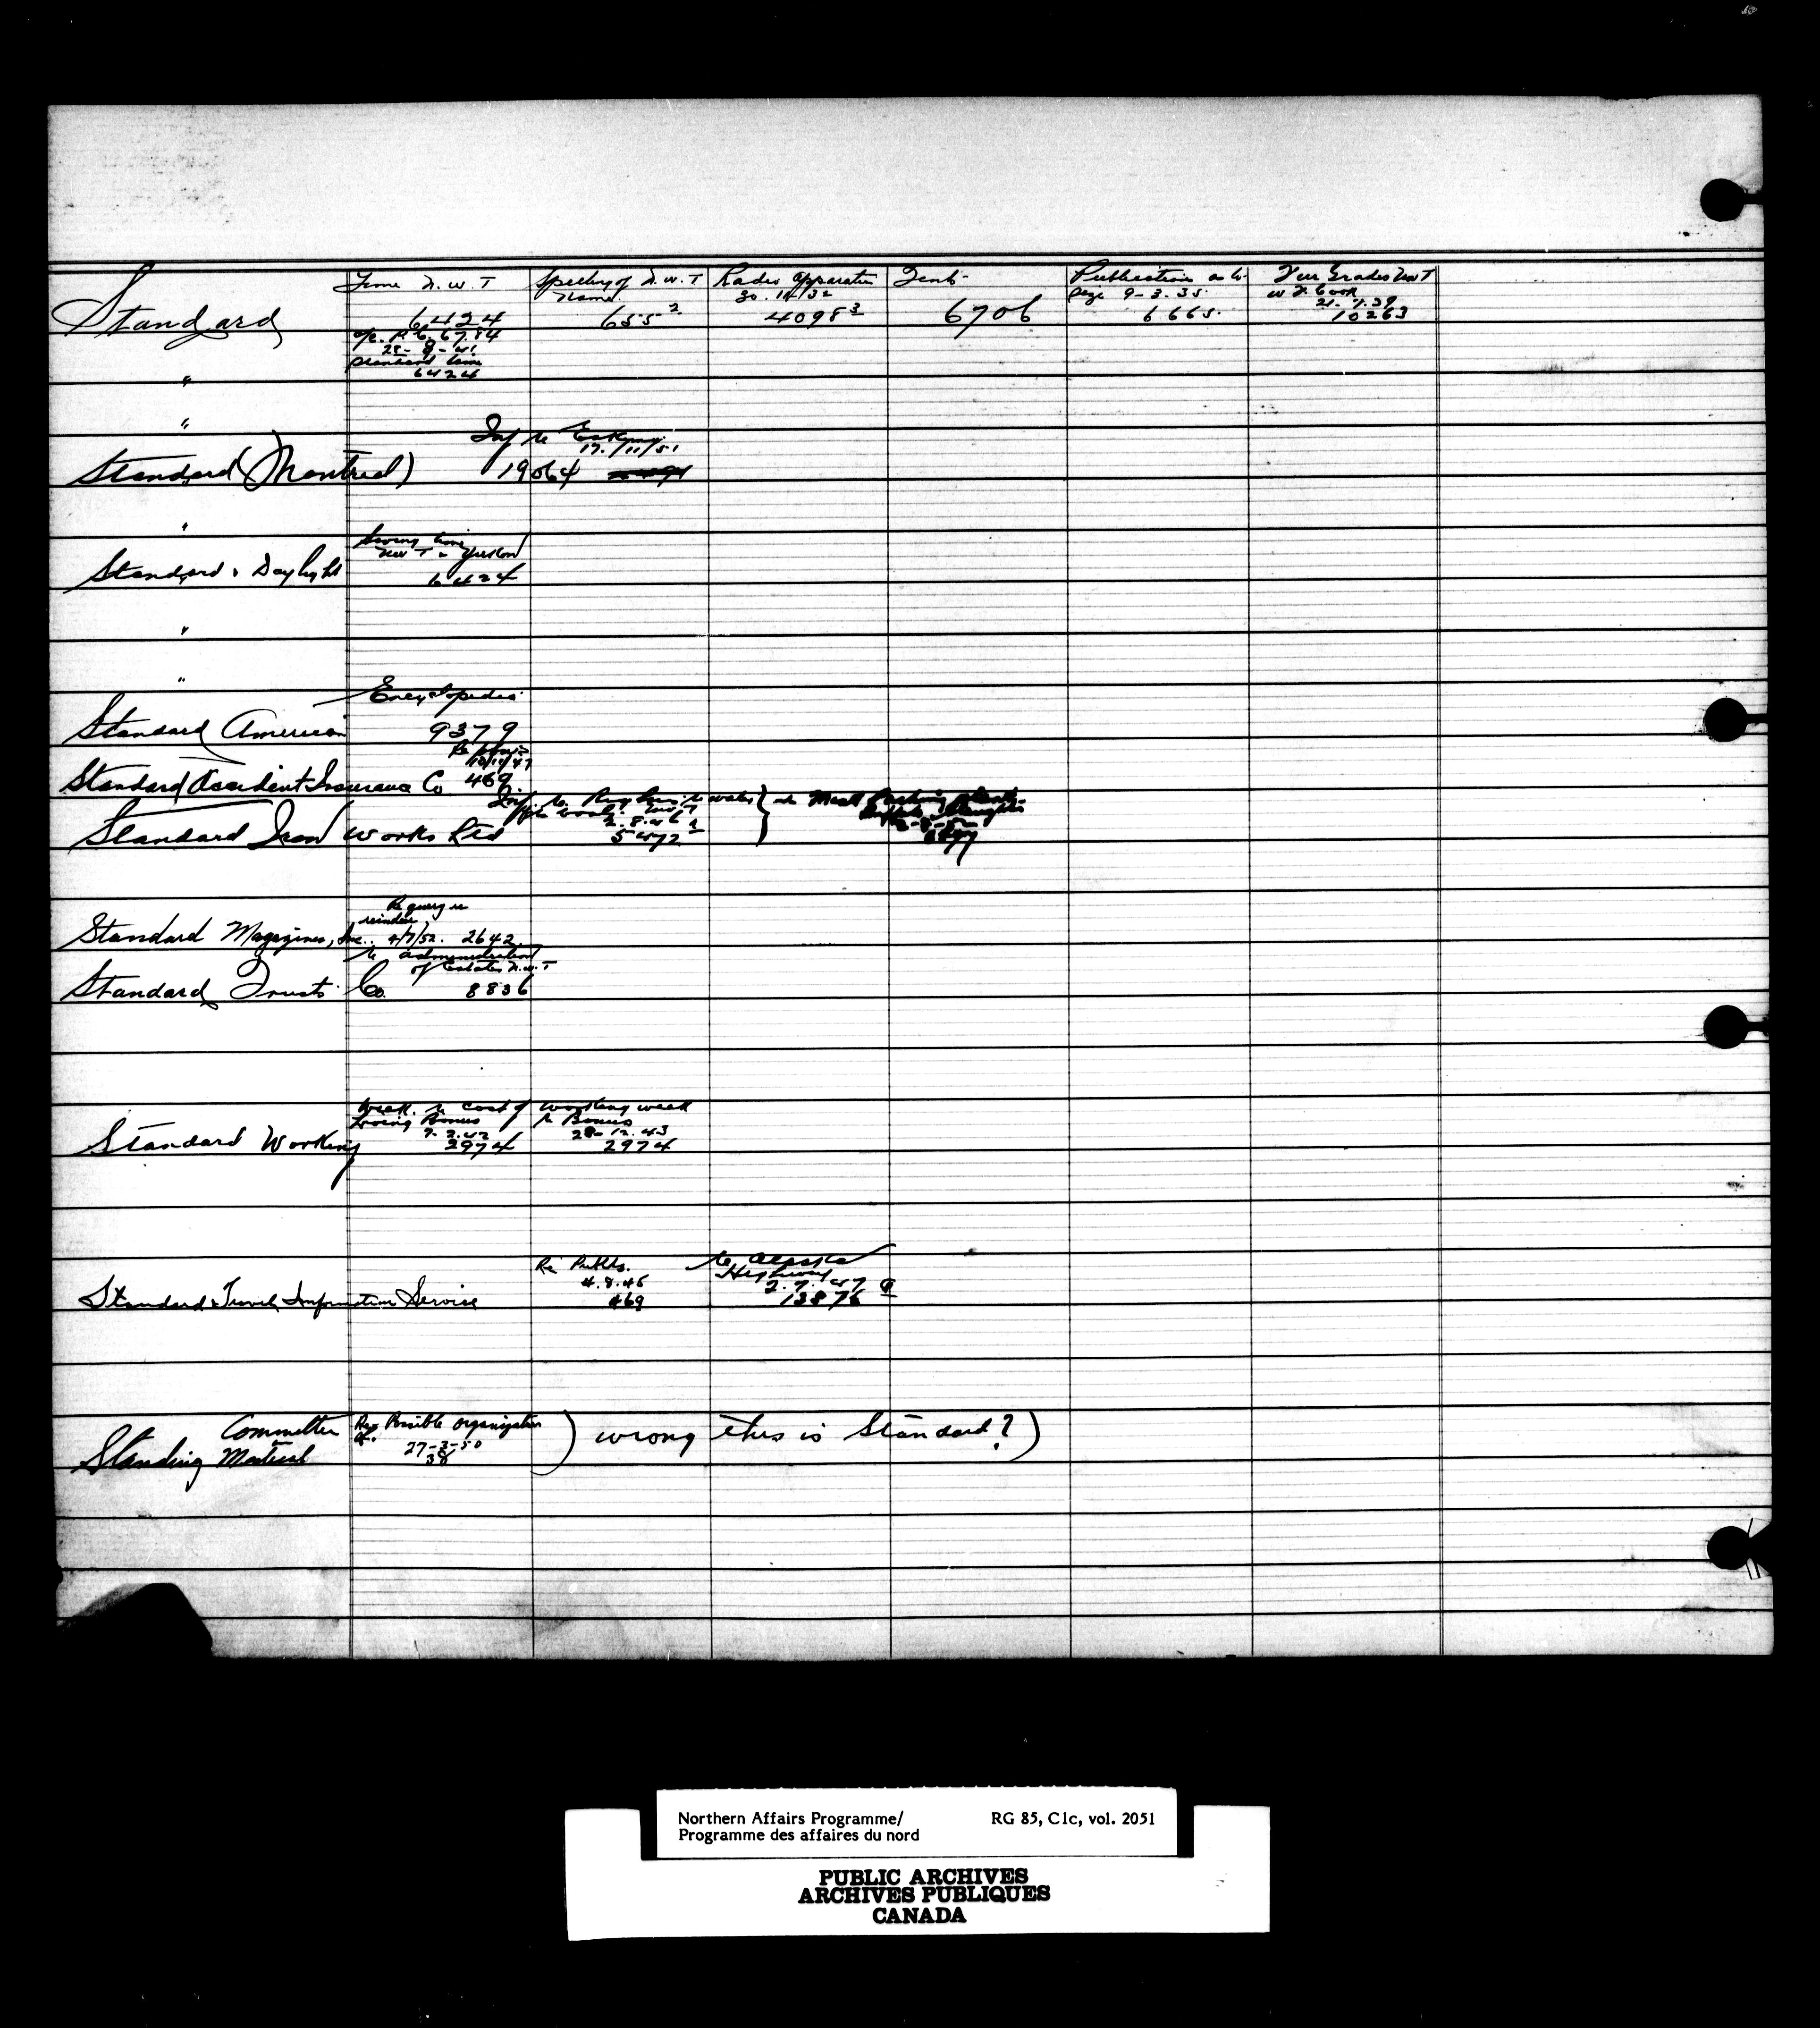 Time N.W.T
Spelling of N.W.T
Name
Radio Apparatus
30.11/32
Tent
Publication
page 9-3-35
Fur Grades NWT
21.7.39
Standard
6424
655 2
4098 3
6706
6665
10263
o/c. P.C. 6784
25-9-41
Standard time
6424
"
"
Inf re Eskimo
17/11/51
Standard (Montreal)
19064
"
Saving time
NWT & Yukon
Standard & Daylight
6424
"
"
Encyclopedia
Standard American
9379
Re
10/11/47
Standard Accident Insurance Co
469
Inf re
} re Meat Packing Plant
Standard Iron Works Ltd
5472
Re query re
reindeer
Standard Magazines, Inc.. 4/7/52. 2642
re administration
of Estates N.W.T
Standard Trusts Co. 8836
Week re cost of
Living Bonus
7-2.42
working week
re Bonus
28-12.43
Standard Working
2974
2974
Re Publts.
4.8.45
re Alaska
Highway
2.7.47
Standard Travel Information Service
469
13876
Committee Re Possible organization
of.
27-3-50
) wrong this is Standard? )
Standing
38
Northern Affairs Programme/ RG 85, C1c, vol. 2051
Programme des affaires du nord
PUBLIC ARCHIVES
ARCHIVES PUBLIQUES
CANADA